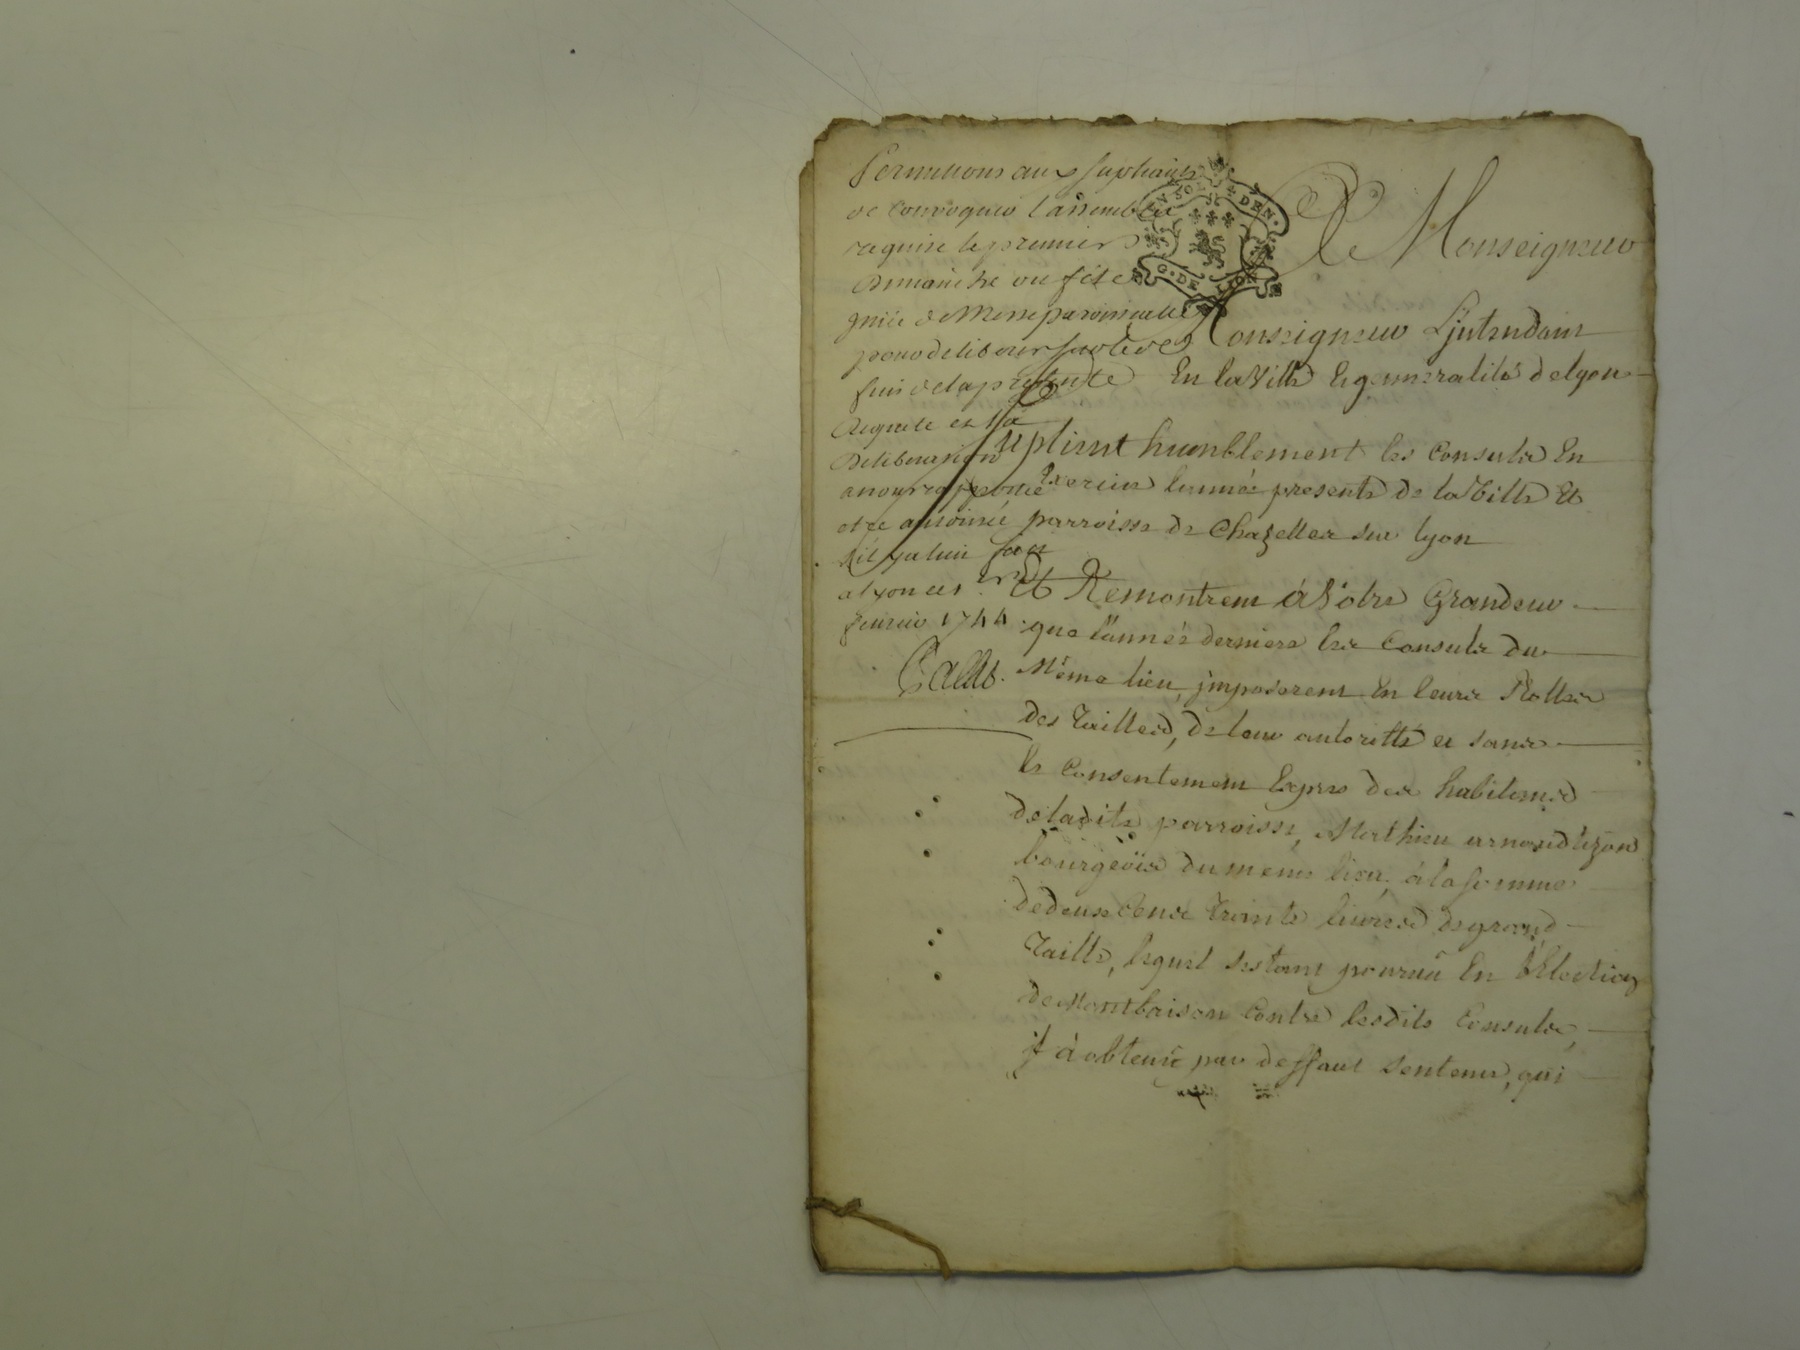 Permettons aux supliants
de Convoquer l'assemblée
requise le premier
Dimanche ou fête
de Messe paroissialle
pour deliberer sur le
de la presente
Requete et la
Deliberation
a nous rapportée
etre autorisée
s'il y a lieu fait
a Lyon ce
fevrier 1744
UN SOL DEN.
G. DE LION
A Monseigneur
Monseigneur L'jntendant
En la Ville & generalité de lyon
Suplient humblement les Consuls En
Exercice lannée presente de la Ville Et
parroisse de Chazelles sur lyon
Et Remontrent à Votre Grandeur
que l'année derniere les Consuls du
Même lieu, jmposerent En leurs Rolles
des Tailles, de leur autoritté et sans
le Consentement Expres des habitants
de ladite parroisse, Mathieu arnaud
bourgeois du meme lieu, à la somme
de deux Cents trente livres de grand
Taille, lequel s'estant pourvû En l'Election
de Montbrison Contre lesdits Consuls,
jl à obtenu par deffaut sentence, qui